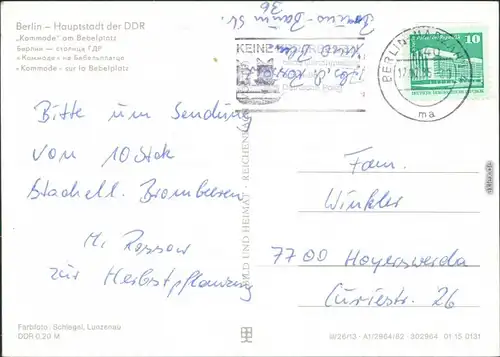 Berlin – Hauptstadt der DDR
„Kommode" am Bebelplatz
Берлин — столица ГДР
«Коммоде» на Бебельплатце
«Kommode» sur la Bebelplatz
36
KEINE
BERLIN
10
ma
Bitte um Sendung
von 10 Stck
Stachell. Brombeeren
M. Rossow
zur Herbstpflanzung
BILD UND HEIMAT · REICHENBACH
Fam.
Winkler
7700 Hoyerswerda
Curiestr. 26
Farbfoto: Schlegel, Lunzenau
DDR 0,20 M
W/26/13 · A1/2964/82 302964 01 15 0131